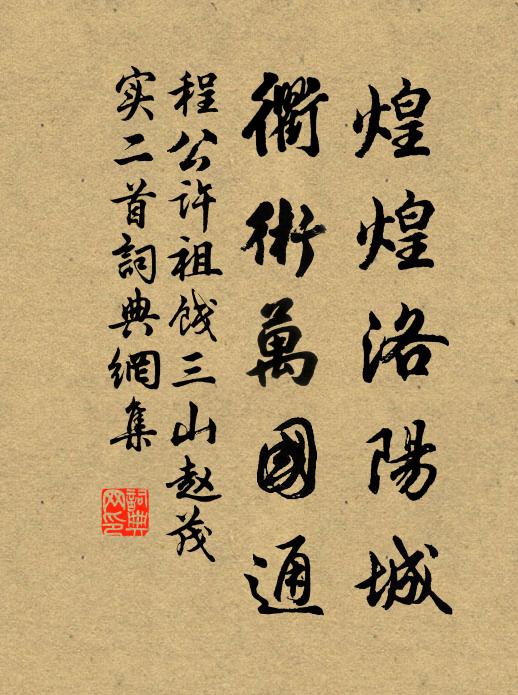 煌煌洛陽城
衢術萬國通
程公许祖餞三山赵茂
实二首詞典網集
詞典网印